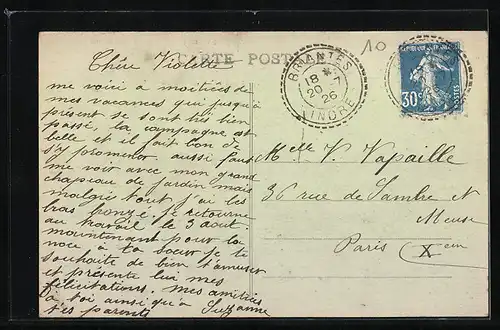 CARTE POSTALE
10
Chère Violette
me voici à moitiées de
mes vacances qui jusqu'à
présent se sont très bien
passé, la campagne est
belle et il fait bon de
s'y promener. aussi faut
me voir avec mon grand
chapeau de jardin mais
malgré tout j'ai les
bras bronzé. je retourne
au travail le 3 août.
maintenant pour la
noce à ta sœur je te
souhaite de bien t'amuser
et présente lui mes
félicitations. mes amitiés
à toi ainsi qu'à
tes parents Suzanne
BRIANTES
18 *
20 - 7
26
INDRE
REPUBLIQUE FRANÇAISE
30c
POSTES
Melle V. Vapaille
36 rue de Sambre et
Meuse
Paris Xem